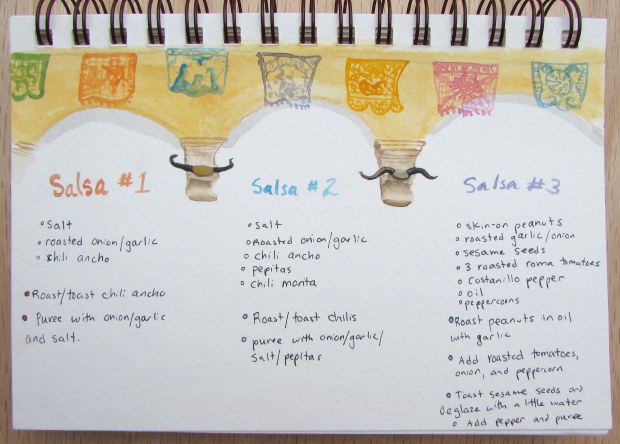 Salsa #1
salt
roasted onion/garlic
chili ancho
Roast/toast chili ancho
Puree with onion/garlic
and salt.
Salsa #2
salt
Roasted onion/garlic
chili ancho
pepitas
chili monta
Roast/toast chilis
puree with onion/garlic/
salt/pepitas
Salsa #3
skin-on peanuts
roasted garlic/onion
sesame seeds
3 roasted roma tomatoes
costanillo pepper
oil
peppercorns
Roast peanuts in oil
with garlic
Add roasted tomatoes,
onion, and peppercorn
Toast sesame seeds and
deglaze with a little water
Add pepper and puree